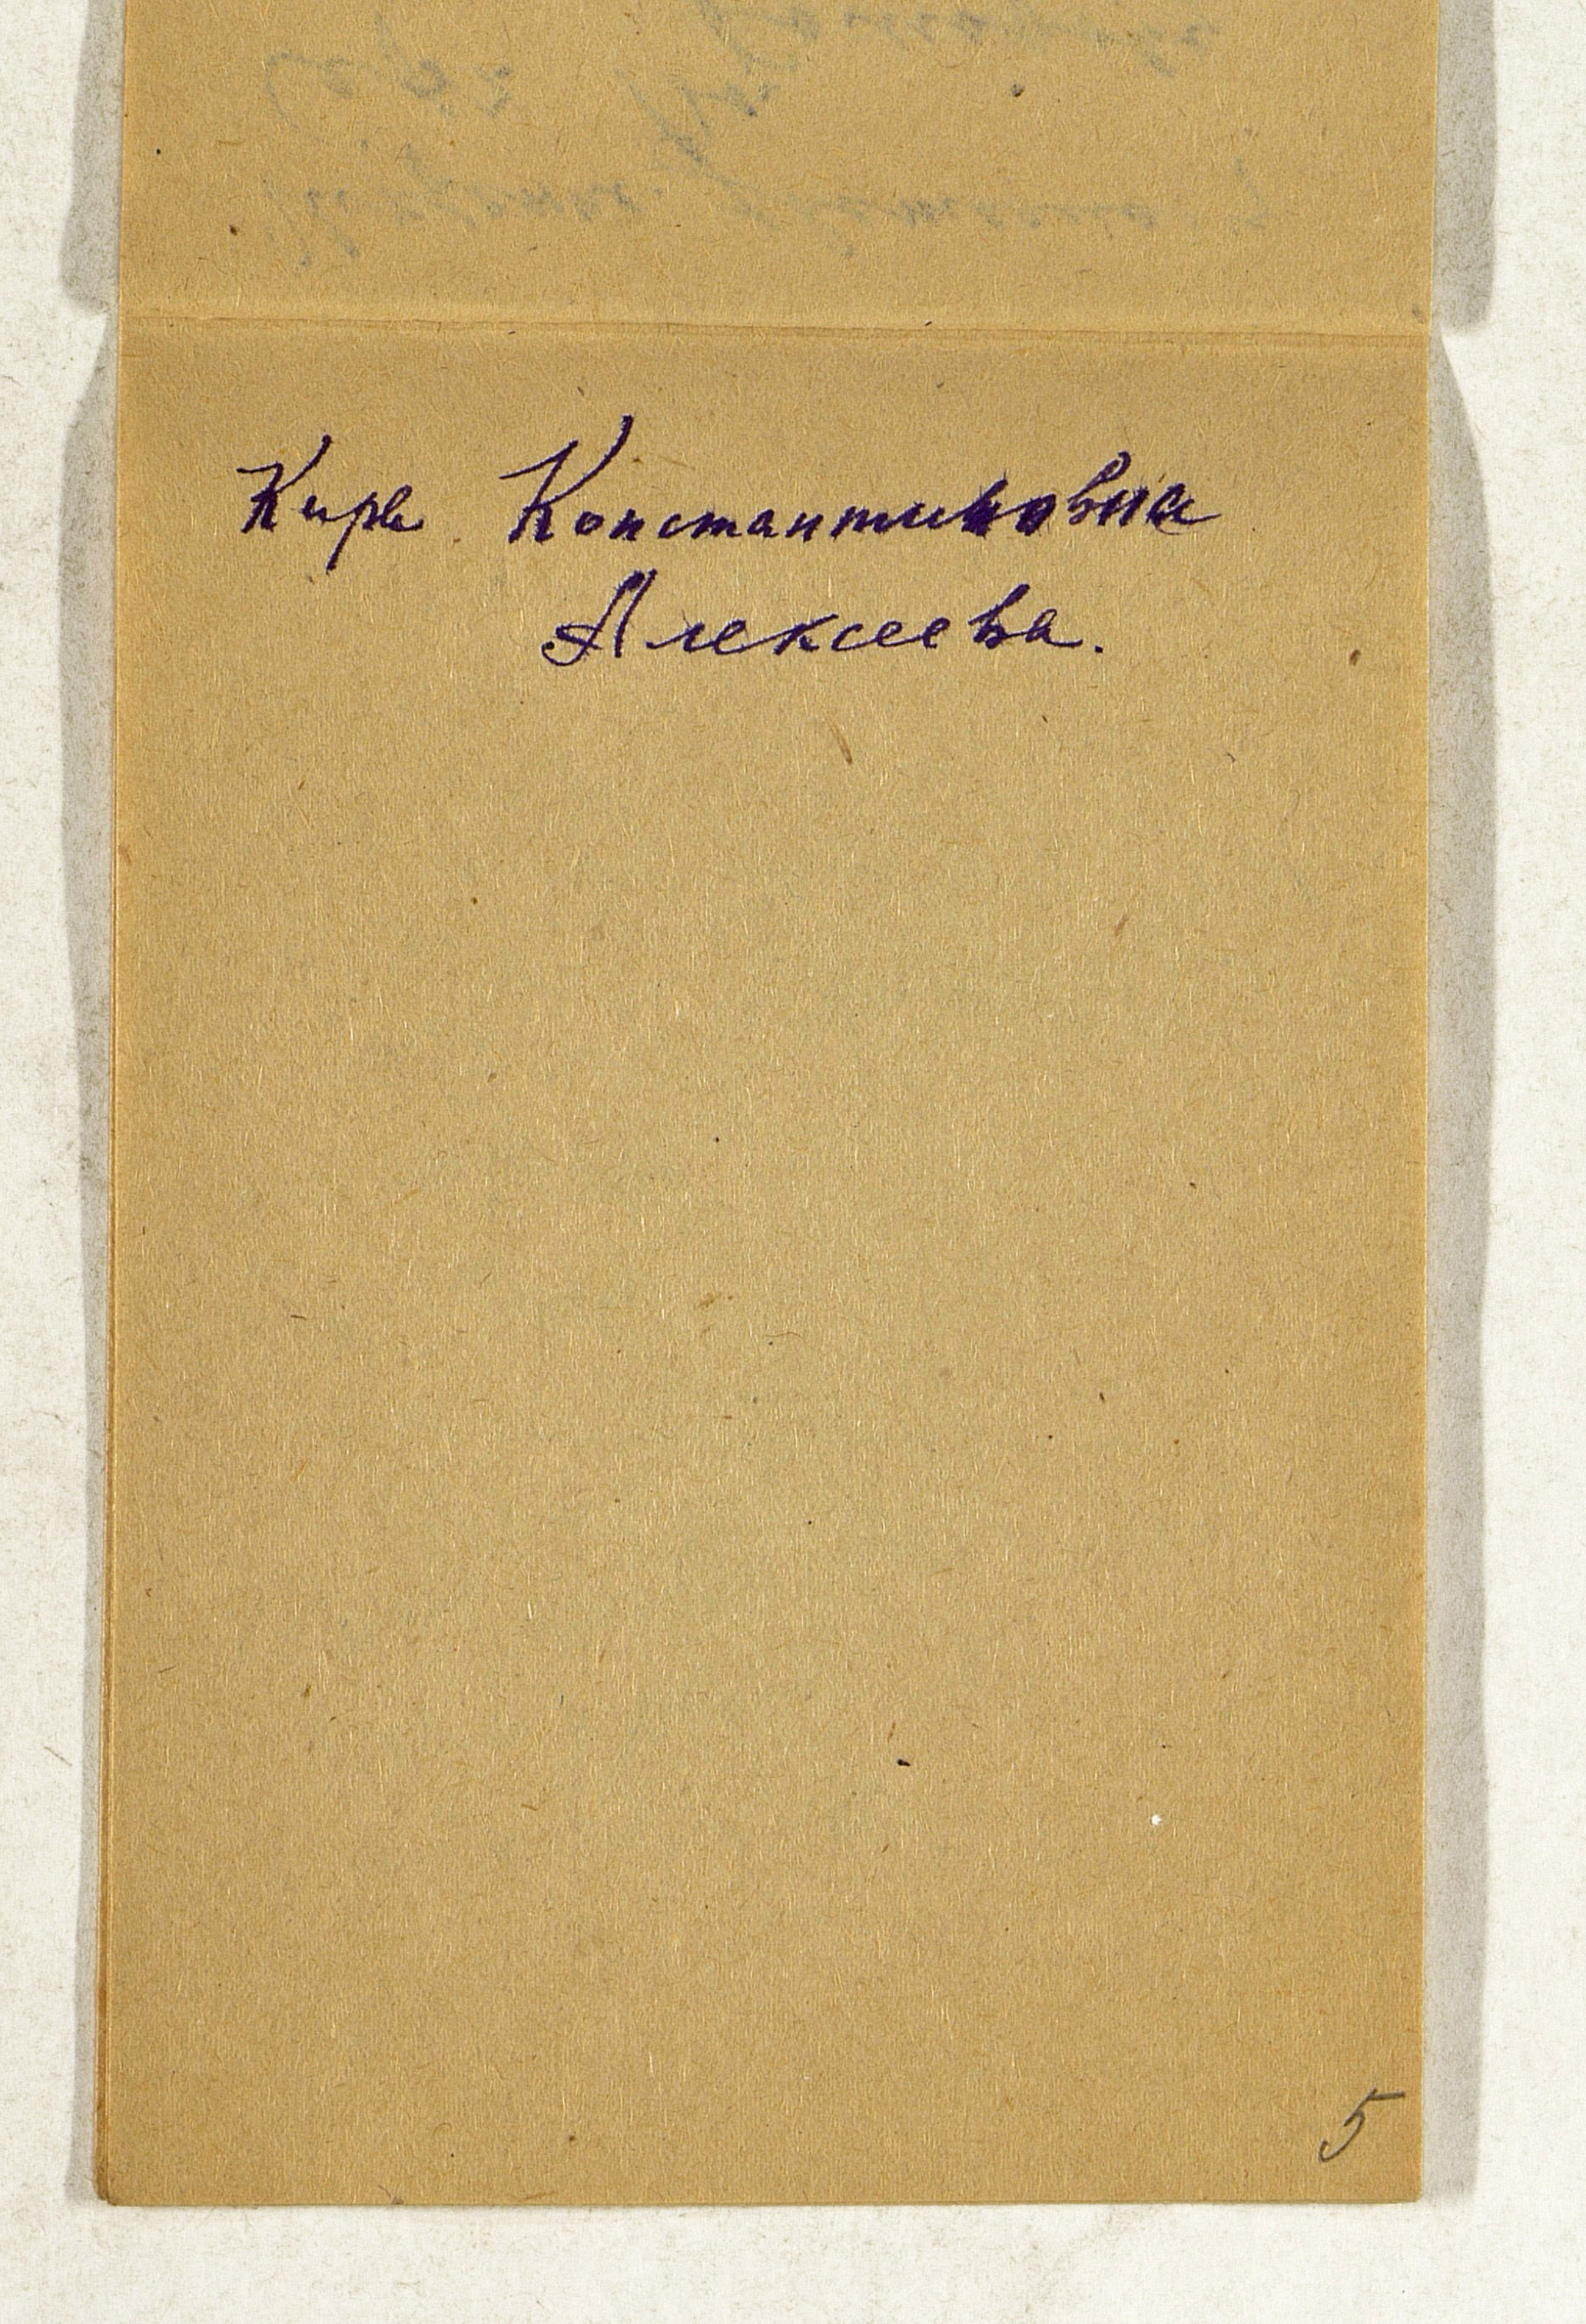 Кира Константиновна
Алексеева.
5